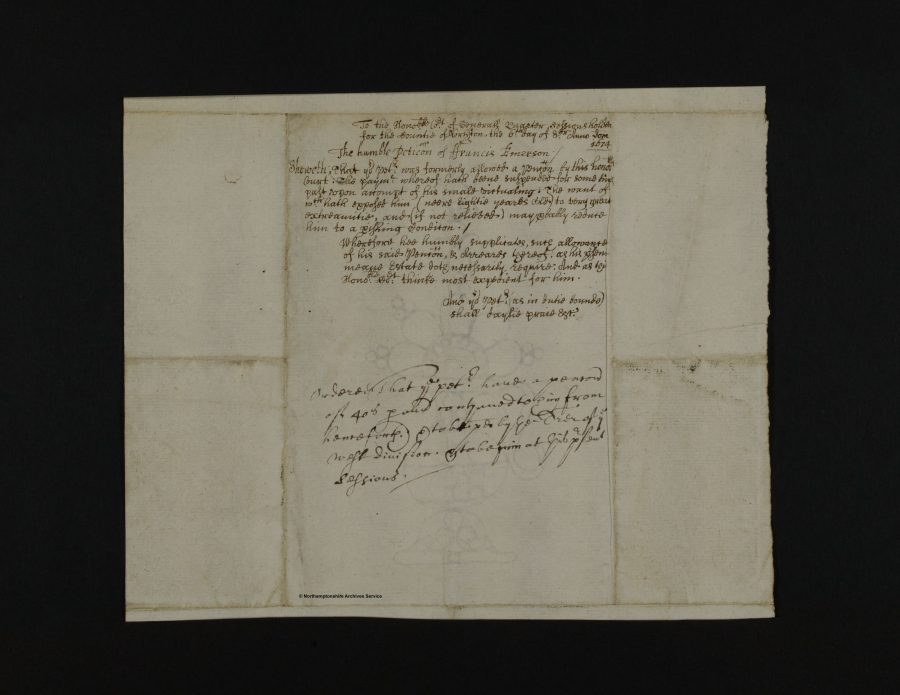 To the Hono:ble Co:rt of Generall Quarter Sessions holden
for the Countie of North:ton, the 6:th day of 8:br Anno Dom
1674
The humble Peticon of Francis Emerson /
Sheweth, That yo:r Pet:r was formerly allowed a Pencon by this hono:ble
Court: The paym:t whereof hath beene suspended for some time
past upon accompt of his small victualing: The want of
w:ch hath exposed him (neere Eightie yeares old) to very great
extreamitie, and (if not relieved) may p:bably reduce
him to a pishing Condicon. /
Wherefore hee humbly supplicates, such allowance
of his said Pencon, & Arreares thereof, as his p:sent
meane Estate doth necessarily require: And as this
Hono:ble Co:rt thinks most expedient for him.
And yo:r Pet:r (as in dutie bound)
shall daylie praie &c:
Ordered That y:e pet:r have a pencon
of 40s p ann continued to him from
henceforth to be pd by the Trer of y:e
west division. to begin at this p:sent
Sessions.
© Northamptonshire Archives Service